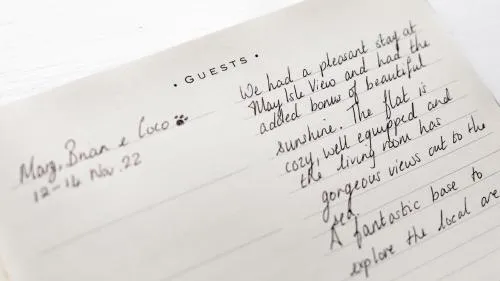 • GUESTS •
Marg, Brian & Coco
12-16 Nov. 22
We had a pleasant stay at
May Isle View and had the
added bonus of beautiful
sunshine. The flat is
cozy, well equipped and
the living room has
gorgeous views out to the
sea.
A fantastic base to
explore the local are